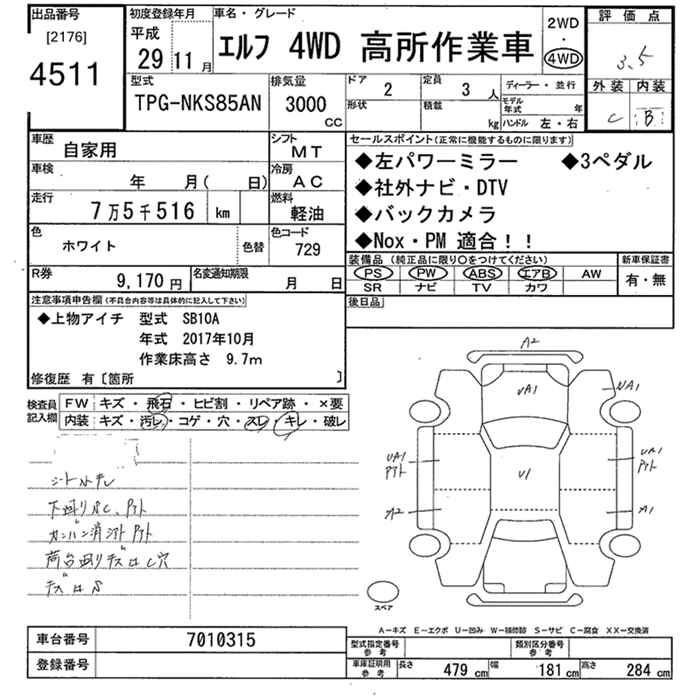 出品番号
[2176]
4511
初度登録年月
平成
29 11 月
車名・グレード
エルフ 4WD 高所作業車
2WD
・
4WD
評価点
3.5
外装 内装
C B
型式
TPG-NKS85AN
排気量
3000
CC
ドア 2
形状
定員 3 人
積載 kg
ディーラー・並行
モデル年式 年
ハンドル 左・右
車歴 自家用
シフト MT
車検 年 月( 日)
冷房 AC
走行 7万5千516 km
燃料 軽油
色 ホワイト 色替
色コード 729
R券 9,170 円
名変通知期限 月 日
セールスポイント(正常に機能するものに限ります)
◆左パワーミラー ◆3ペダル
◆社外ナビ・DTV
◆バックカメラ
◆Nox・PM 適合!!
装備品(純正品に限り○をつけてください)
新車保証書
PS PW ABS エアB AW
SR ナビ TV カワ
有・無
後日品
注意事項申告欄(不具合内容等は具体的に記入して下さい)
◆上物アイチ 型式 SB10A
年式 2017年10月
作業床高さ 9.7m
修復歴 有〔箇所 〕
検査員記入欄
FW キズ・飛石・ヒビ割・リペア跡・×要
内装 キズ・汚レ・コゲ・穴・スレ・キレ・破レ
シートキレ
下廻りSC、P
荷台廻りキズ凹C穴
キズ凹S
A2
UA1
UA1
UA1
U1
UA1
A2
A1
スペア
A－キズ E－エクボ U－凹み W－補修跡 S－サビ C－腐食 XX－交換済
車台番号 7010315
登録番号
型式指定番号参考
類別区分番号参考
車庫証明用参考
長さ 479 cm 幅 181 cm 高さ 284 cm